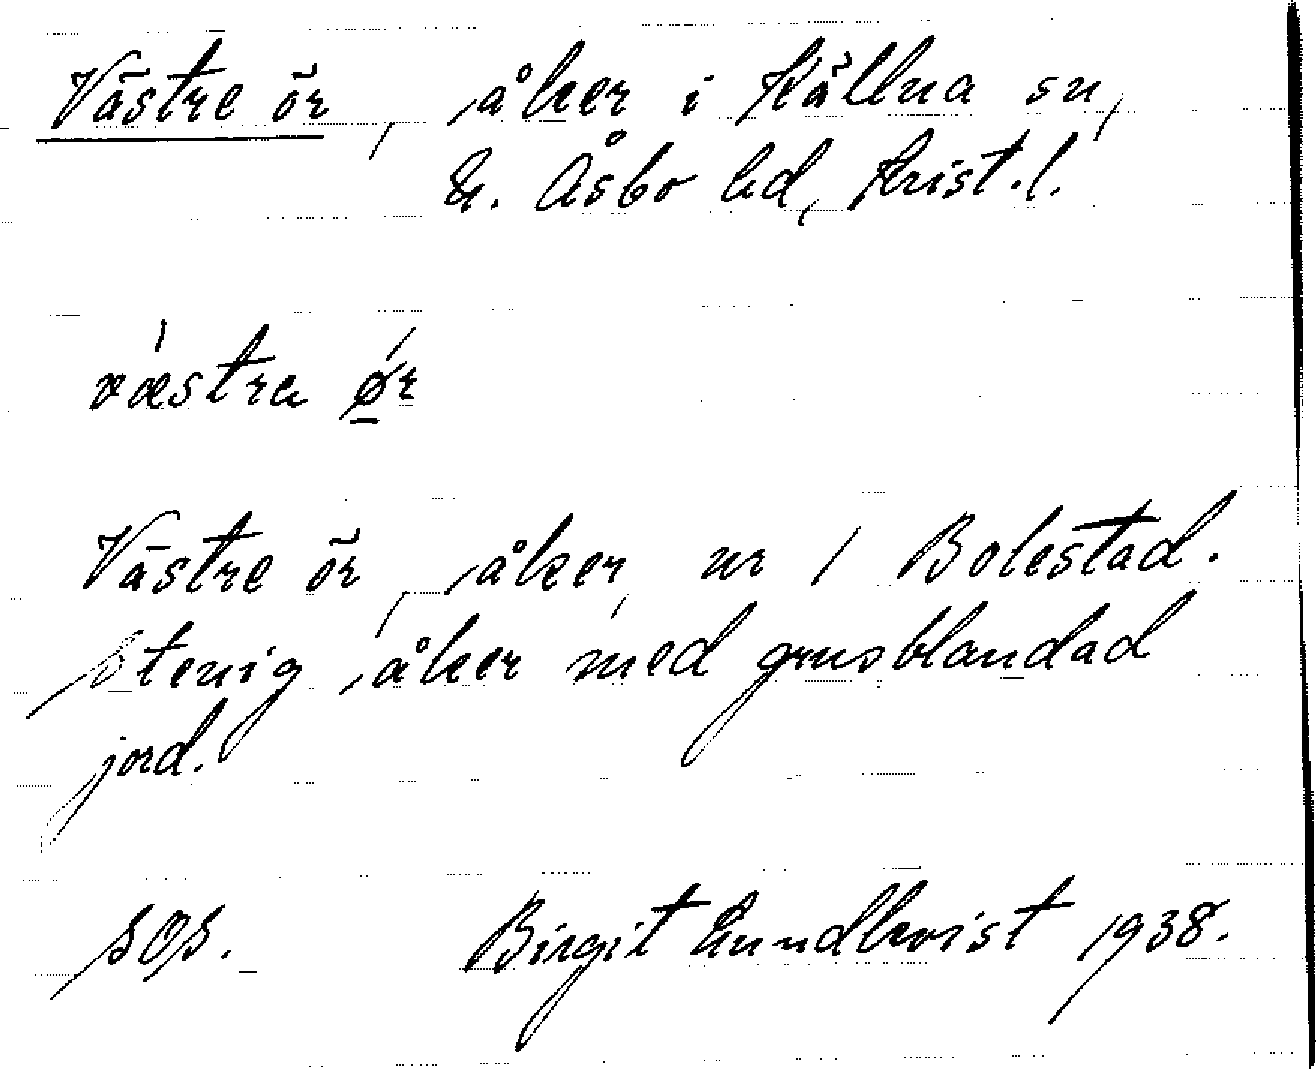 Västre ör, åker i Källna sn,
N. Åsbo hd, Krist. l.
væstra ør
Västre ör, åker, nr 1 Bolestad.
Stenig åker med grusblandad
jord.
SOS. Birgit Lundkvist 1938.